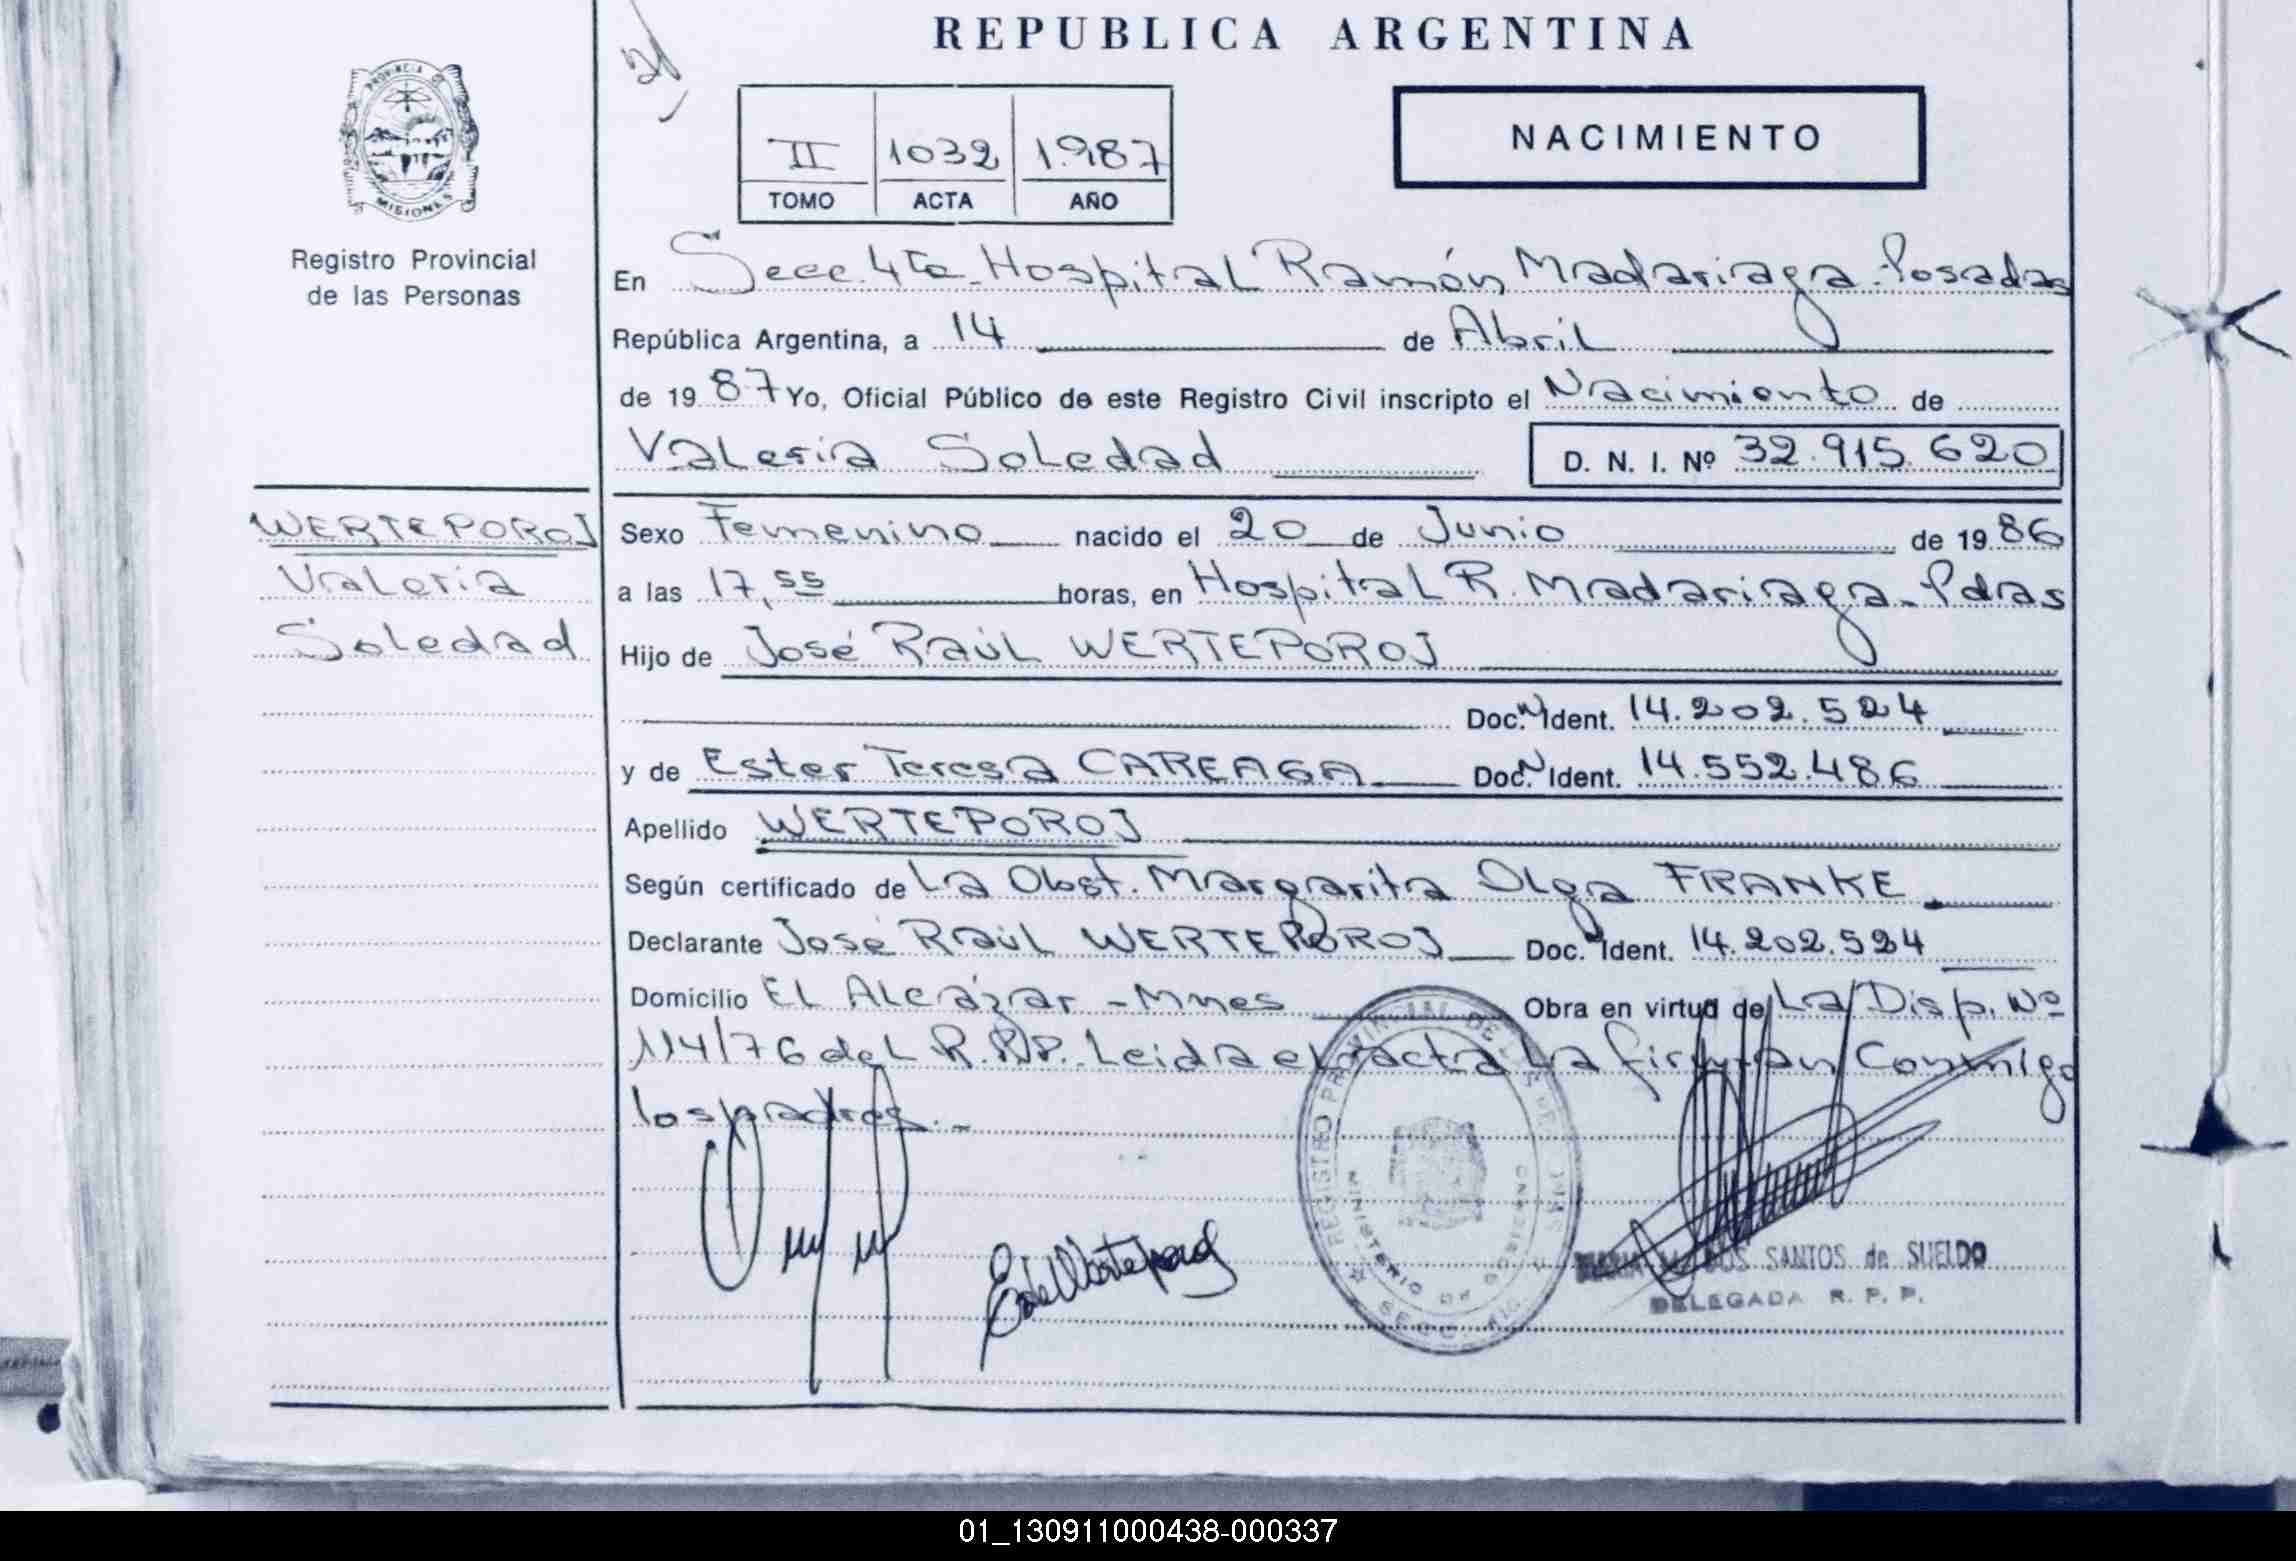 REPUBLICA ARGENTINA
PROVINCIA DE
MISIONES
Registro Provincial
de las Personas
II 1032 1.987
TOMO ACTA AÑO
NACIMIENTO
En Secc. 4ta - Hospital Ramón Madariaga - Posadas
República Argentina, a 14 de Abril
de 19 87 Yo, Oficial Público de este Registro Civil inscripto el Nacimiento de
Valeria Soledad D. N. I. Nº 32.915.620
WERTEPOROJ
Valeria
Soledad
Sexo Femenino nacido el 20 de Junio de 19 86
a las 17,55 horas, en Hospital R. Madariaga - Pdas
Hijo de José Raúl WERTEPOROJ
Doc. N Ident. 14.202.524
y de Ester Teresa CAREAGA Doc. N Ident. 14.552.486
Apellido WERTEPOROJ
Según certificado de La Obst. Margarita Olga FRANKE
Declarante José Raúl WERTEPOROJ Doc. N Ident. 14.202.524
Domicilio El Alcázar - Mnes Obra en virtud de La Disp. Nº
114/76 del R.P.P. Leida el acta La firman Conmigo
los padres. -
REGISTRO PROVINCIAL DE LAS PERSONAS
MINISTERIO DE GOBIERNO
SECC. 4ta
MARIA M. DOS SANTOS de SUELDO
DELEGADA R. P. P.
01_130911000438-000337